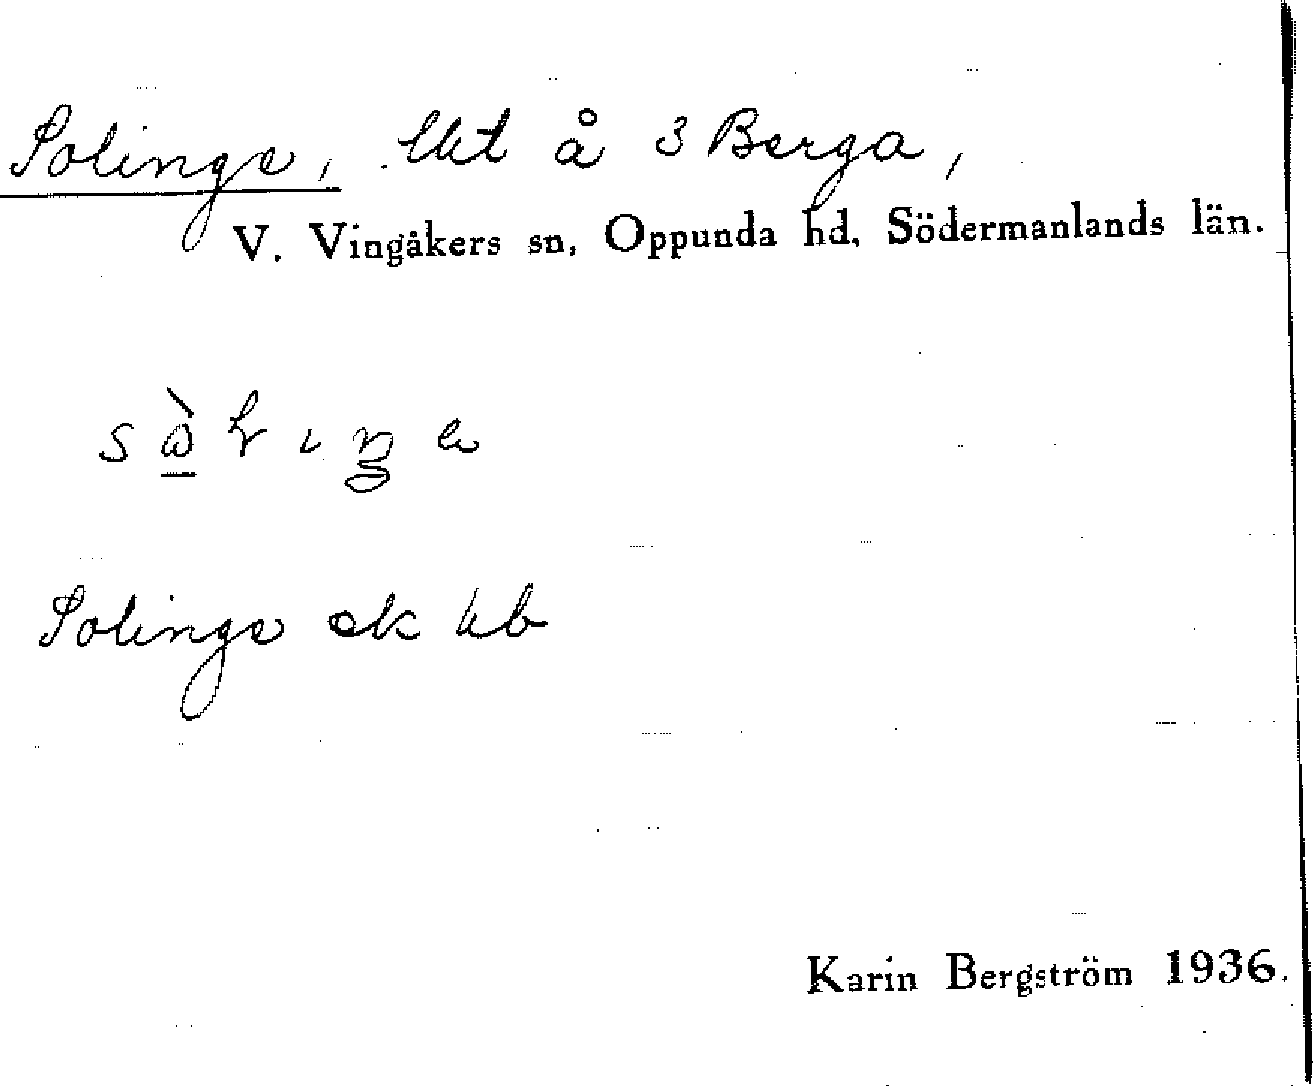 Solinge, lht å 3 Berga,
V. Vingåkers sn, Oppunda hd, Södermanlands län.
Solinge ek kb
Karin Bergström 1936.